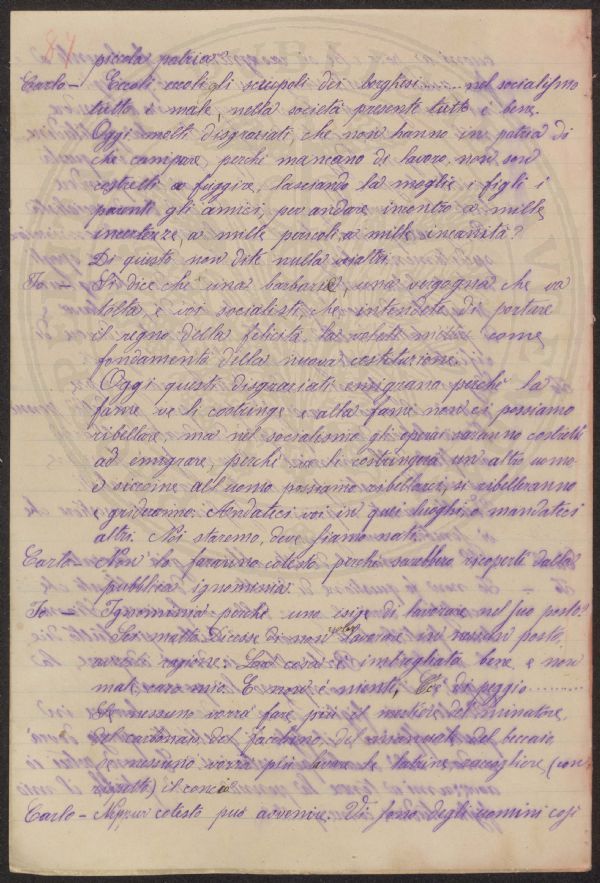 87
piccola patria.
Carlo – Eccoli eccoli gli scrupoli dei borghesi...... nel socialismo
tutto è male, nella società presente tutto è bene.
Oggi molti disgraziati, che non hanno in patria di
che campare, perché mancano di lavoro, non son
costretti a fuggire, lasciando la moglie i figli i
parenti gli amici, per andare incontro a mille
incertezze, a mille pericoli, a mille incognite?
Di questo non dite nulla
Io – Si dice che è una barbarie, una vergogna che va
tolta, e voi socialisti, che intendete di portare
il regno della felicità, la volete mettere come
fondamento della nuova costituzione.
Oggi questi disgraziati emigrano perché la
fame ve li costringe e alla fame non ci possiamo
ribellare, ma nel socialismo gli operai saranno costretti
ad emigrare, perché ve li costringerà un altro uomo
e siccome all'uomo possiamo ribellarci, si ribelleranno
e grideranno: Andateci voi in quei luoghi, o mandateci
altri. Noi staremo, dove siamo nati.
Carlo – Non lo faranno cotesto, perché sarebbero ricoperti dalla
pubblica ignominia.
Io – Ignominia perché uno esige di lavorare nel suo posto?
Sei matto. Dicesse di non voler lavorare in nessun posto,
avresti ragione. La cosa è imbrogliata bene, e non
male, caro mio. E non è niente, C'è di peggio.........
Se nessuno vorrà fare più il mestiere del minatore,
del carbonaio, del facchino, del manovale del beccaio,
se nessuno vorrà più lavare le latrine, raccogliere, (con
rispetto) il concio
Carlo – Neppur cotesto può avvenire. Vi sono degli uomini così